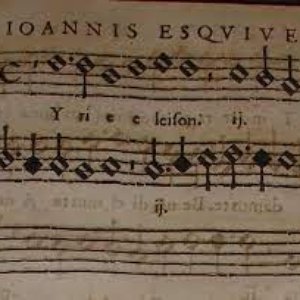 IOANNIS ESQVIVE
Y ri e e leiſon: ij.
ij.